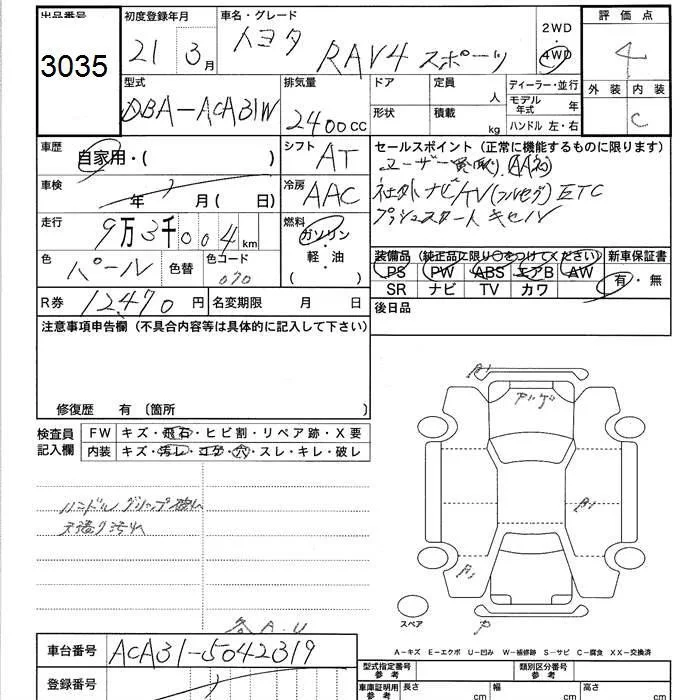 出品番号 初度登録年月 車名・グレード 2WD・4WD 評価点
3035 21 3月 トヨタ RAV4 スポーツ 4
型式 排気量 ドア 定員 人 ディーラー・並行 外装 内装
DBA-ACA31W 2400cc 形状 積載 kg モデル年式 年 ハンドル 左・右 C
車歴 自家用・( ) シフト AT セールスポイント (正常に機能するものに限ります)
ユーザー買取り (AA初)
車検 年 月(日) 冷房 AAC 社外ナビ/TV(フルセグ) ETC
走行 9万3千004km 燃料 ガソリン・軽油( ) プッシュスタート キセノン
色 パール 色替 色コード 070 装備品 (純正品に限り○をつけてください) 新車保証書
PS PW ABS エアB AW 有・無
SR ナビ TV カワ
R券 12470円 名変期限 月 日 後日品
注意事項申告欄 (不具合内容等は具体的に記入して下さい)
修復歴 有 〔箇所 〕
検査員記入欄 FW キズ・飛石・ヒビ割・リペア跡・X要
内装 キズ・汚レ・コゲ・穴・スレ・キレ・破レ
ハンドルグリップ
天張り汚れ
各A.U
スペア
A-キズ E-エクボ U-凹み W-補修跡 S-サビ C-腐食 XX-交換済
車台番号 ACA31-5042319 型式指定番号 参考 類別区分番号 参考
登録番号 車庫証明用 参考 長さ cm 幅 cm 高さ cm